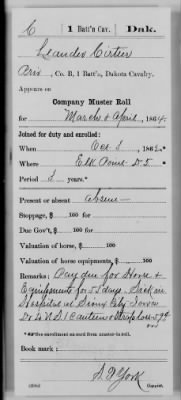 C | 1 Batt'n Cav. | Dak.
Leander Cirtier
Priv, Co. B, 1 Batt'n, Dakota Cavalry.
Appears on
Company Muster Roll
for March & April, 1864.
Joined for duty and enrolled:
When Oct 3, 186
Where Elk Point D.T.
Period 3 years.*
Present or absent Absent
Stoppage, $ 100 for
Due Gov't, $ 100 for
Valuation of horse, $ 100
Valuation of horse equipments, $ 100
Remarks: Pay due for Horse &
Equipments for 55 days. Sick in
Hospital at Sioux City Iowa
Dr to U.S. 1 Canteen & Strap loss 59¢
*See enrollment on card from muster-in roll.
Book mark:
York
Copyist.